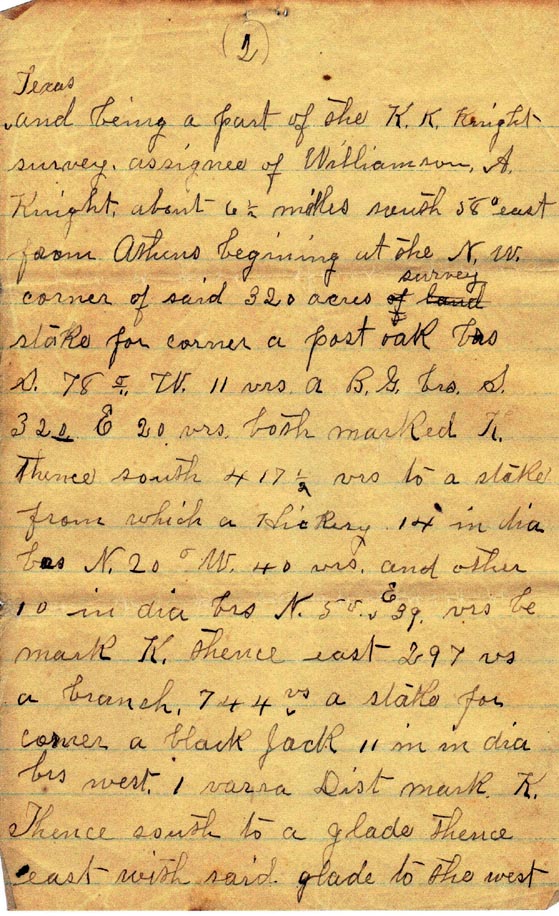 (2)
Texas
and being a part of the K. K. Knight
survey. assignee of Williamson, A.
Knight, about 6 1/2 miles south 58° east
from Athens begining at the N. W.
survey
corner of said 320 acres of land
stake for corner a post oak brs
S. 78 °. W. 11 vrs. a B. G. brs. S.
320 E 20 vrs. both marked K.
Thence south 417 1/2 vrs to a stake
from which a Hickery 14 in dia
brs N. 20 ° W. 40 vrs. and other
10 in dia brs N. 5°. E 39. vrs be
mark K. Thence east 297 vs
a branch, 744 vs a stake for
corner a black Jack 11 in in dia
brs west. 1 varra Dist mark K.
Thence south to a glade thence
east with said glade to the west